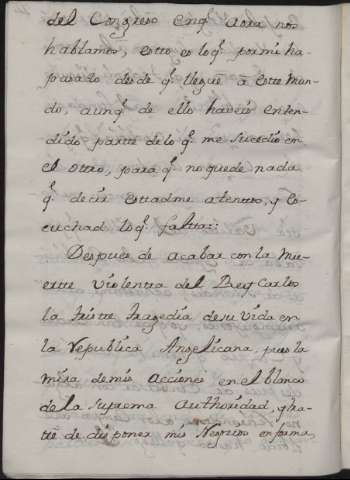 del Congreso enq.̃ aora nos
hablamos, esto es loq.̃ pormi ha-
pasado desde q.̃ llegue ã este Mun-
do, aunq.̃ de ello haveis enten-
dido parte delo q.̃ me sucedio en
el otro, paraq.̃ no quede nada
q.̃ decir estadme atentos, y es-
cuchad loq.̃ falta:
Despues de acabar con la Mu-
erte violenta del Rey Carlos
la triste tragedia desu vida en
la Republica Anglicana, puse la
mira demis acciones en el blanco
dela suprema authoridad, y tra-
tè de disponer mis Negocios en forma,